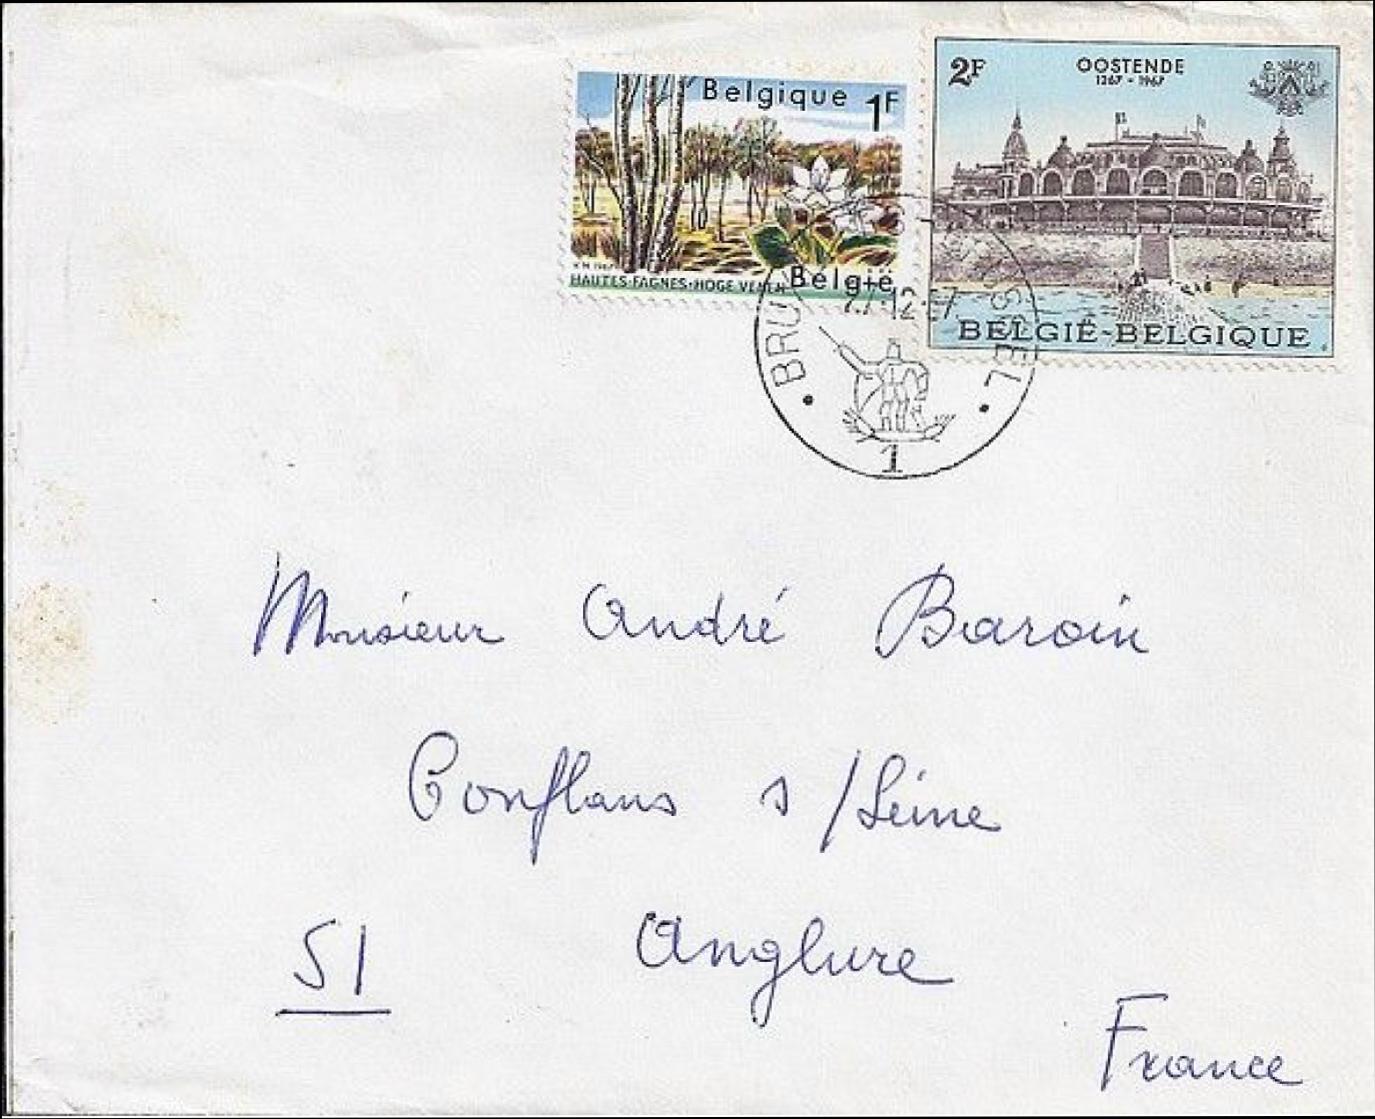 Belgique 1F
HAUTES-FAGNES-HOGE VENEN
België
2F
OOSTENDE
1267 - 1967
BELGIË-BELGIQUE
1
Monsieur André Baroin
Conflans s/Seine
51 Anglure
France